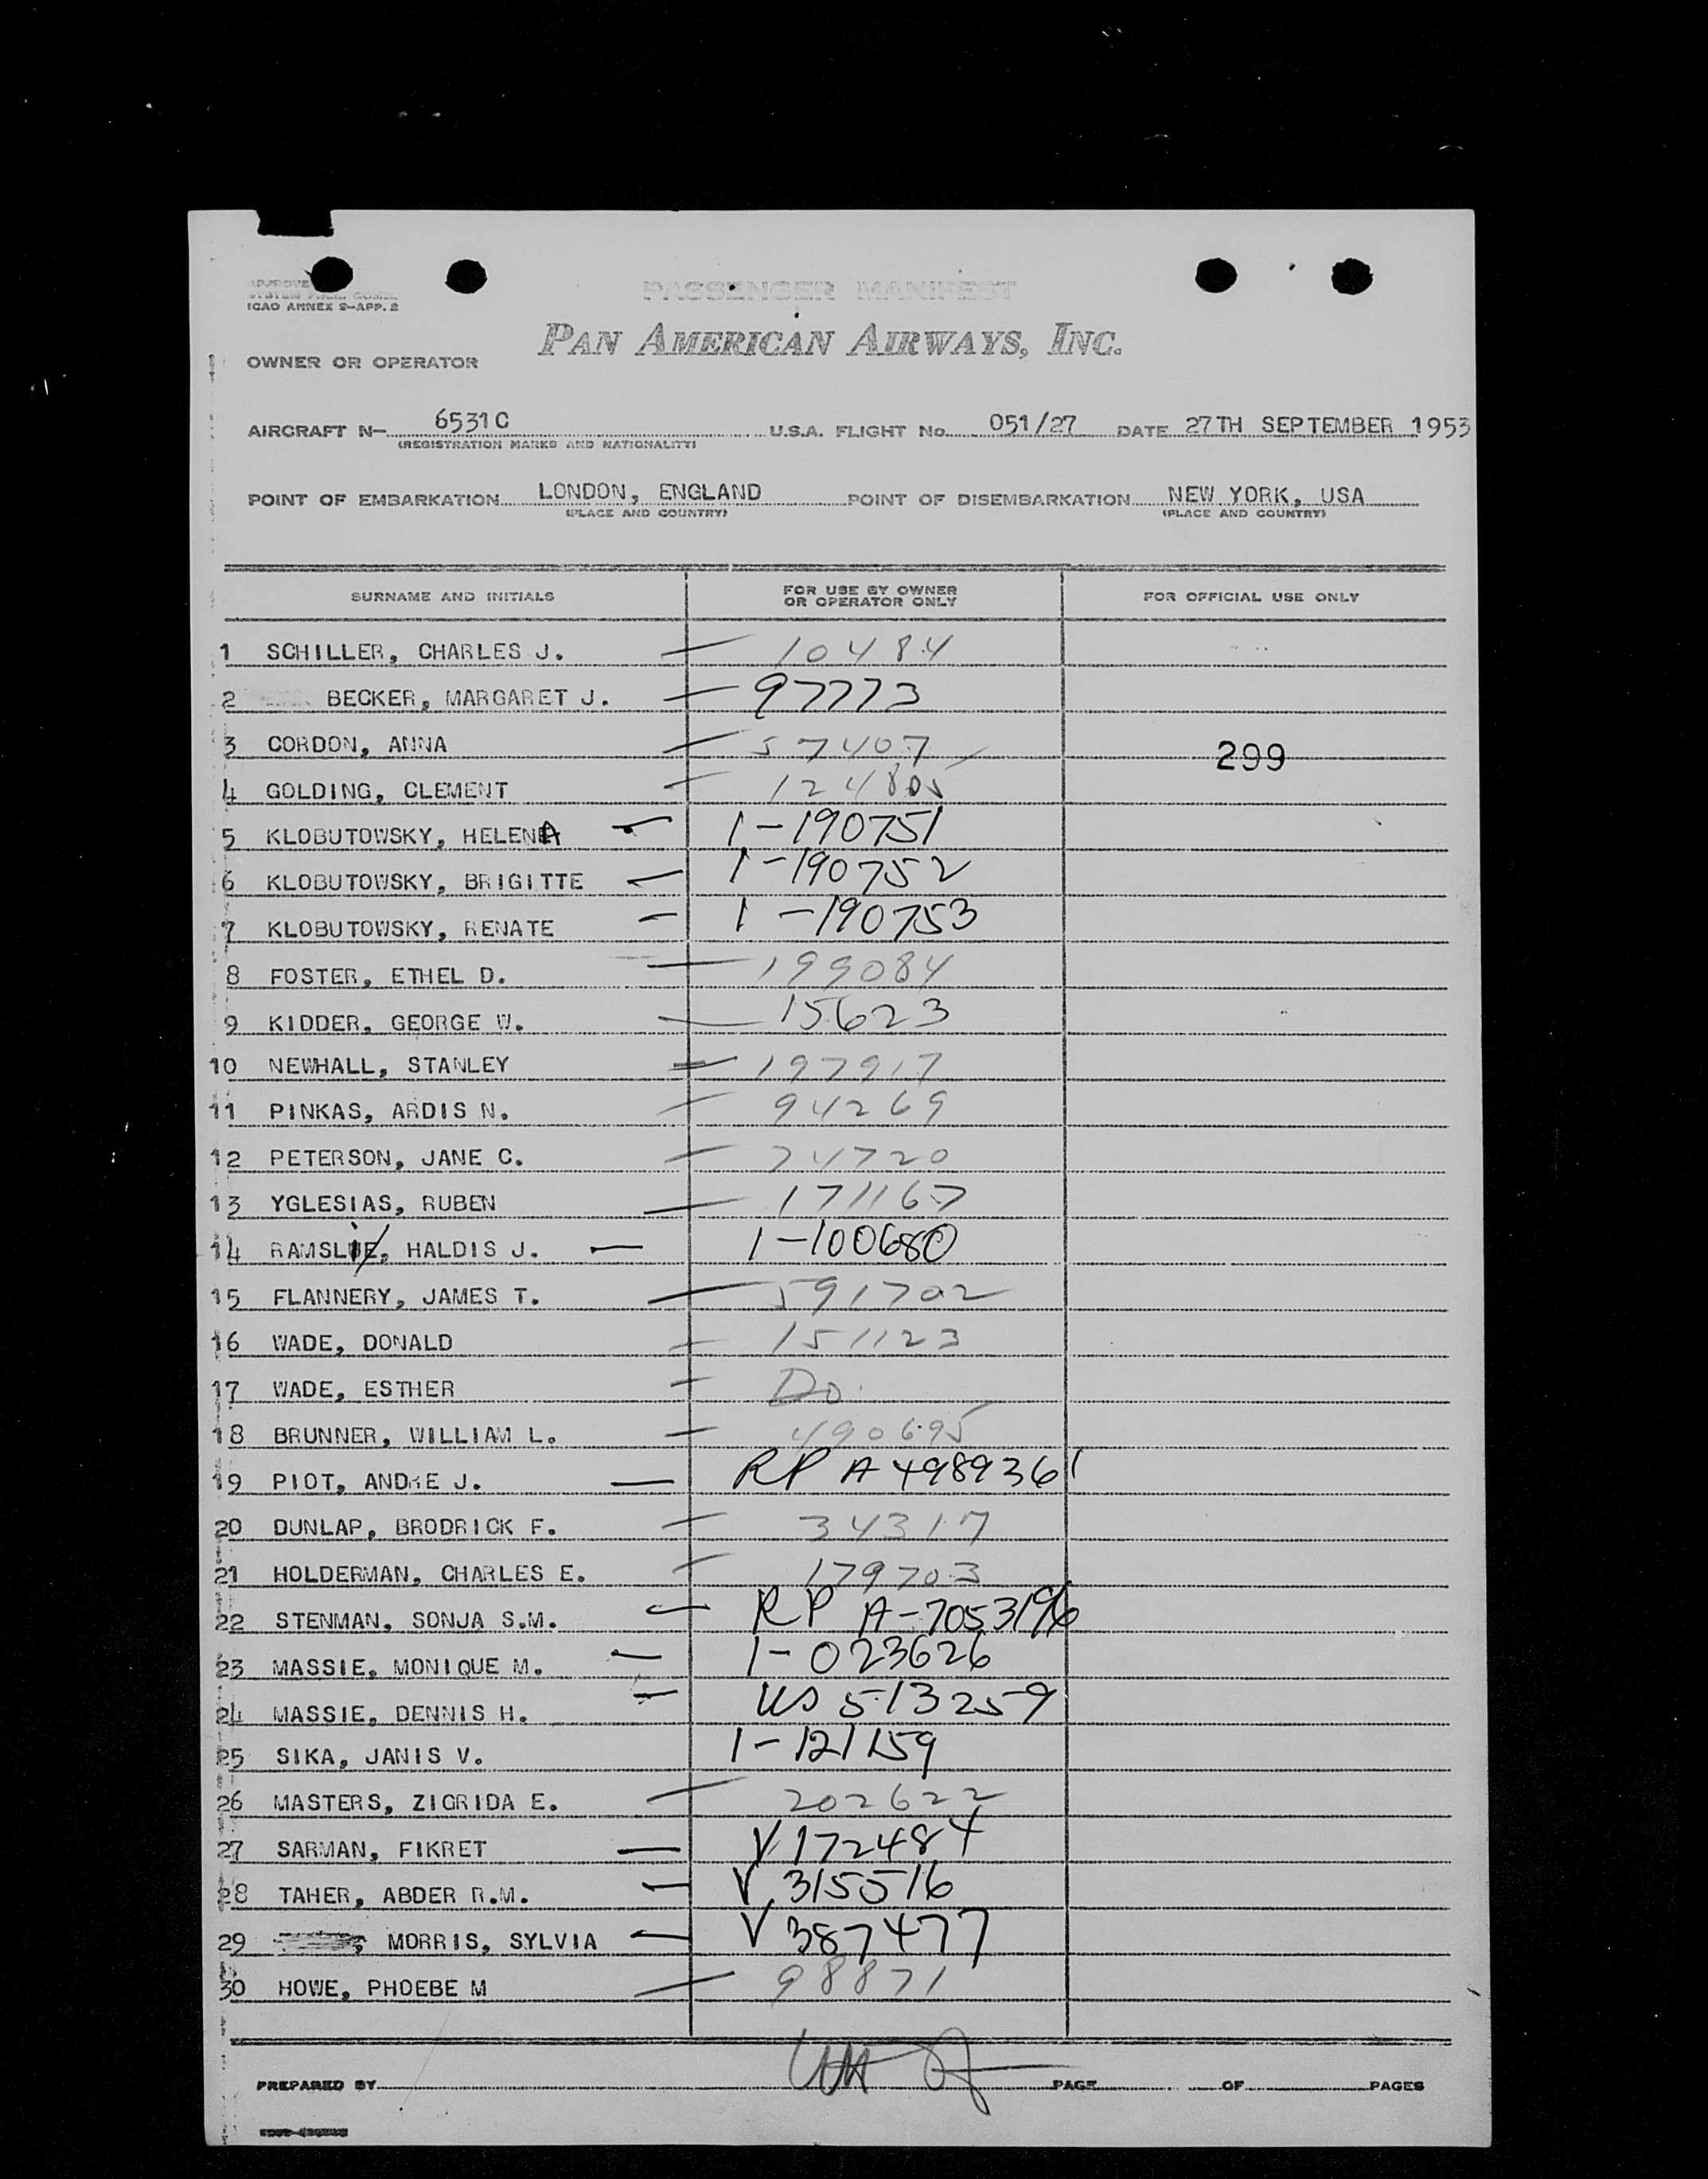 ICAO ANNEX 9-APP. 2
PASSENGER MANIFEST
PAN AMERICAN AIRWAYS, INC.
OWNER OR OPERATOR
AIRCRAFT N- 6531C U.S.A. FLIGHT No. 051/27 DATE 27TH SEPTEMBER 1953
(REGISTRATION MARKS AND NATIONALITY)
POINT OF EMBARKATION LONDON, ENGLAND POINT OF DISEMBARKATION NEW YORK, USA
(PLACE AND COUNTRY) (PLACE AND COUNTRY)
SURNAME AND INITIALS FOR USE BY OWNER OR OPERATOR ONLY FOR OFFICIAL USE ONLY
1 SCHILLER, CHARLES J. — 10484
2 BECKER, MARGARET J. — 97773
3 CORDON, ANNA — 57407 299
4 GOLDING, CLEMENT — 124805
5 KLOBUTOWSKY, HELENA — 1-190751
6 KLOBUTOWSKY, BRIGITTE — 1-190752
7 KLOBUTOWSKY, RENATE — 1-190753
8 FOSTER, ETHEL D. — 199084
9 KIDDER, GEORGE W. — 15623
10 NEWHALL, STANLEY — 197917
11 PINKAS, ARDIS N. — 94269
12 PETERSON, JANE C. — 74720
13 YGLESIAS, RUBEN — 171167
14 RAMSLIE, HALDIS J. — 1-100680
15 FLANNERY, JAMES T. — 591702
16 WADE, DONALD — 151123
17 WADE, ESTHER — Do.
18 BRUNNER, WILLIAM L. — 490695
19 PIOT, ANDRE J. — RP A 4989361
20 DUNLAP, BRODRICK F. — 34317
21 HOLDERMAN, CHARLES E. — 179703
22 STENMAN, SONJA S.M. — RP A-7053196
23 MASSIE, MONIQUE M. — 1-023626
24 MASSIE, DENNIS H. — US 513259
25 SIKA, JANIS V. 1-121159
26 MASTERS, ZIGRIDA E. — 202622
27 SARMAN, FIKRET — V 172484
28 TAHER, ABDER R.M. — V 315516
29 MORRIS, SYLVIA — V 387477
30 HOWE, PHOEBE M — 98871
PREPARED BY PAGE OF PAGES